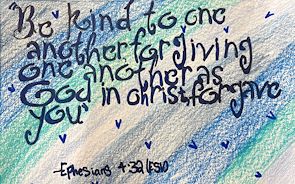 "Be kind to one
another forgiving
one another as
God in christ forgave
you"
-Ephesians 4:32 (ESV)